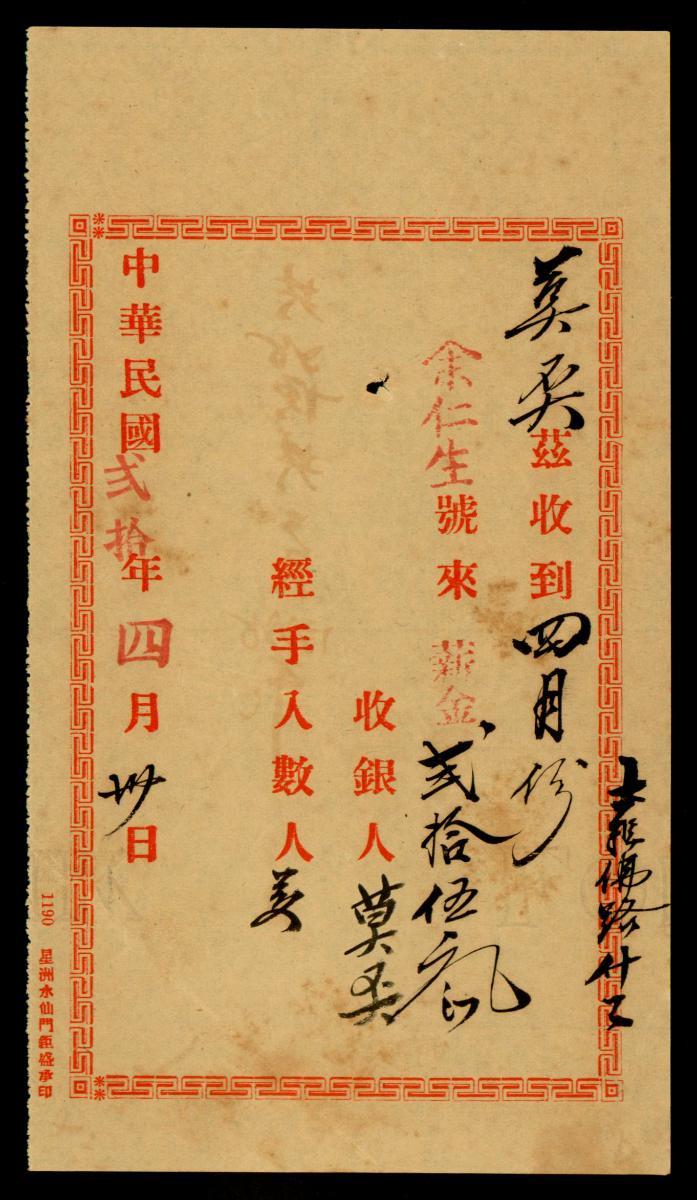 佛路什工
莫 茲收到四月份
余仁生號來薪金弍拾伍元
收銀人莫
經手入數人
中華民國弍拾年四月卅日
1190 星洲水仙門鉅盛承印